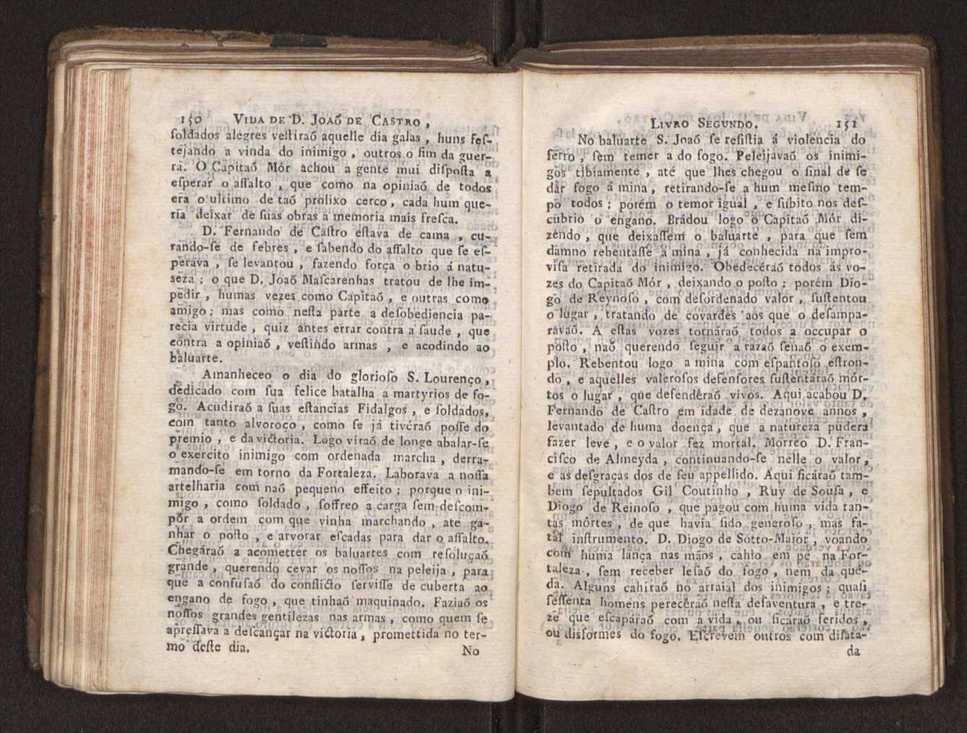 150 VIDA DE D. JOAÕ DE CASTRO,
ſoldados alegres veſtiraõ aquelle dia galas, huns feſ-
tejando a vinda do inimigo, outros o fim da guer-
ra. O Capitaõ Mór achou a gente mui diſpoſta a
eſperar o aſſalto, que como na opiniaõ de todos
era o ultimo de taõ prolixo cerco, cada hum que-
ria deixar de ſuas obras a memoria mais freſca.
D. Fernando de Caſtro eſtava de cama, cu-
rando-ſe de febres, e ſabendo do aſſalto que ſe eſ-
perava, ſe levantou, fazendo força o brio á natu-
reza; o que D. Joaõ Maſcarenhas tratou de lhe im-
pedir, humas vezes como Capitaõ, e outras como
amigo; mas como neſta parte a deſobediencia pa-
recia virtude, quiz antes errar contra a ſaude, que
contra a opiniaõ, veſtindo armas, e acodindo ao
baluarte.
Amanheceo o dia do glorioſo S. Lourenço,
dedicado com ſua felice batalha a martyrios de fo-
go. Acudiraõ a ſuas eſtancias Fidalgos, e ſoldados,
com tanto alvoroço, como ſe já tivéraõ poſſe do
premio, e da victoria. Logo viraõ de longe abalar-ſe
o exercito inimigo com ordenada marcha, derra-
mando-ſe em torno da Fortaleza. Laborava a noſſa
artelharia com naõ pequeno effeito; porque o ini-
migo, como ſoldado, ſoffreo a carga ſem deſcom-
pôr a ordem com que vinha marchando, até ga-
nhar o poſto, e arvorar eſcadas para dar o aſſalto.
Chegáraõ a acometter os baluartes com reſoluçaõ
grande, querendo cevar os noſſos na peleija, para
que a confuſaõ do conflicto ſerviſſe de cuberta ao
engano de fogo, que tinhaõ maquinado. Faziaõ os
noſſos grandes gentilezas nas armas, como quem ſe
apreſſava a deſcançar na victoria, promettida no ter-
mo deſte dia.
No
LIVRO SEGUNDO. 151
No baluarte S. Joaõ ſe reſiſtia á violencia do
ferro, ſem temer a do fogo. Peleijavaõ os inimi-
gos tibiamente, até que lhes chegou o ſinal de ſe
dar fogo á mina, retirando-ſe a hum meſmo tem-
po todos; porém o temor igual, e ſubito nos deſ-
cubrio o engano. Brádou logo o Capitaõ Mór di-
zendo, que deixaſſem o baluarte, para que ſem
damno rebentaſſe a mina, já conhecida na impro-
viſa retirada do inimigo. Obedecéraõ todos ás vo-
zes do Capitaõ Mór, deixando o poſto; porém Dio-
go de Reynoſo, com deſordenado valor, ſuſtentou
o lugar, tratando de covardes aos que o deſampa-
ravaõ. A eſtas vozes tornáraõ todos a occupar o
poſto, naõ querendo ſeguir a razaõ ſenaõ o exem-
plo. Rebentou logo a mina com eſpantoſo eſtron-
do, e aquelles valeroſos defenſores ſuſtentáraõ mór-
tos o lugar, que defendêraõ vivos. Aqui acabou D.
Fernando de Caſtro em idade de dezanove annos,
levantado de huma doença, que a natureza pudera
fazer leve, e o valor fez mortal. Morreo D. Fran-
ciſco de Almeyda, continuando-ſe nelle o valor,
e as deſgraças dos de ſeu appellido. Aqui ficáraõ tam-
bem ſepultados Gil Coutinho, Ruy de Souſa, e
Diogo de Reinoſo, que pagou com huma vida tan-
tas mórtes, de que havia ſido generoſo, mas fa-
tal inſtrumento. D. Diogo de Sotto-Maior, voando
com huma lança nas mãos, cahio em pé na For-
taleza, ſem receber leſaõ do fogo, nem da qué-
da. Alguns cahiraõ no arraial dos inimigos; quaſi
ſeſſenta homens perecêraõ neſta deſaventura, e tre-
ze que eſcapáraõ com a vida, ou ficáraõ feridos,
ou disformes do fogo. Eſcrevem outros com dilata-
da